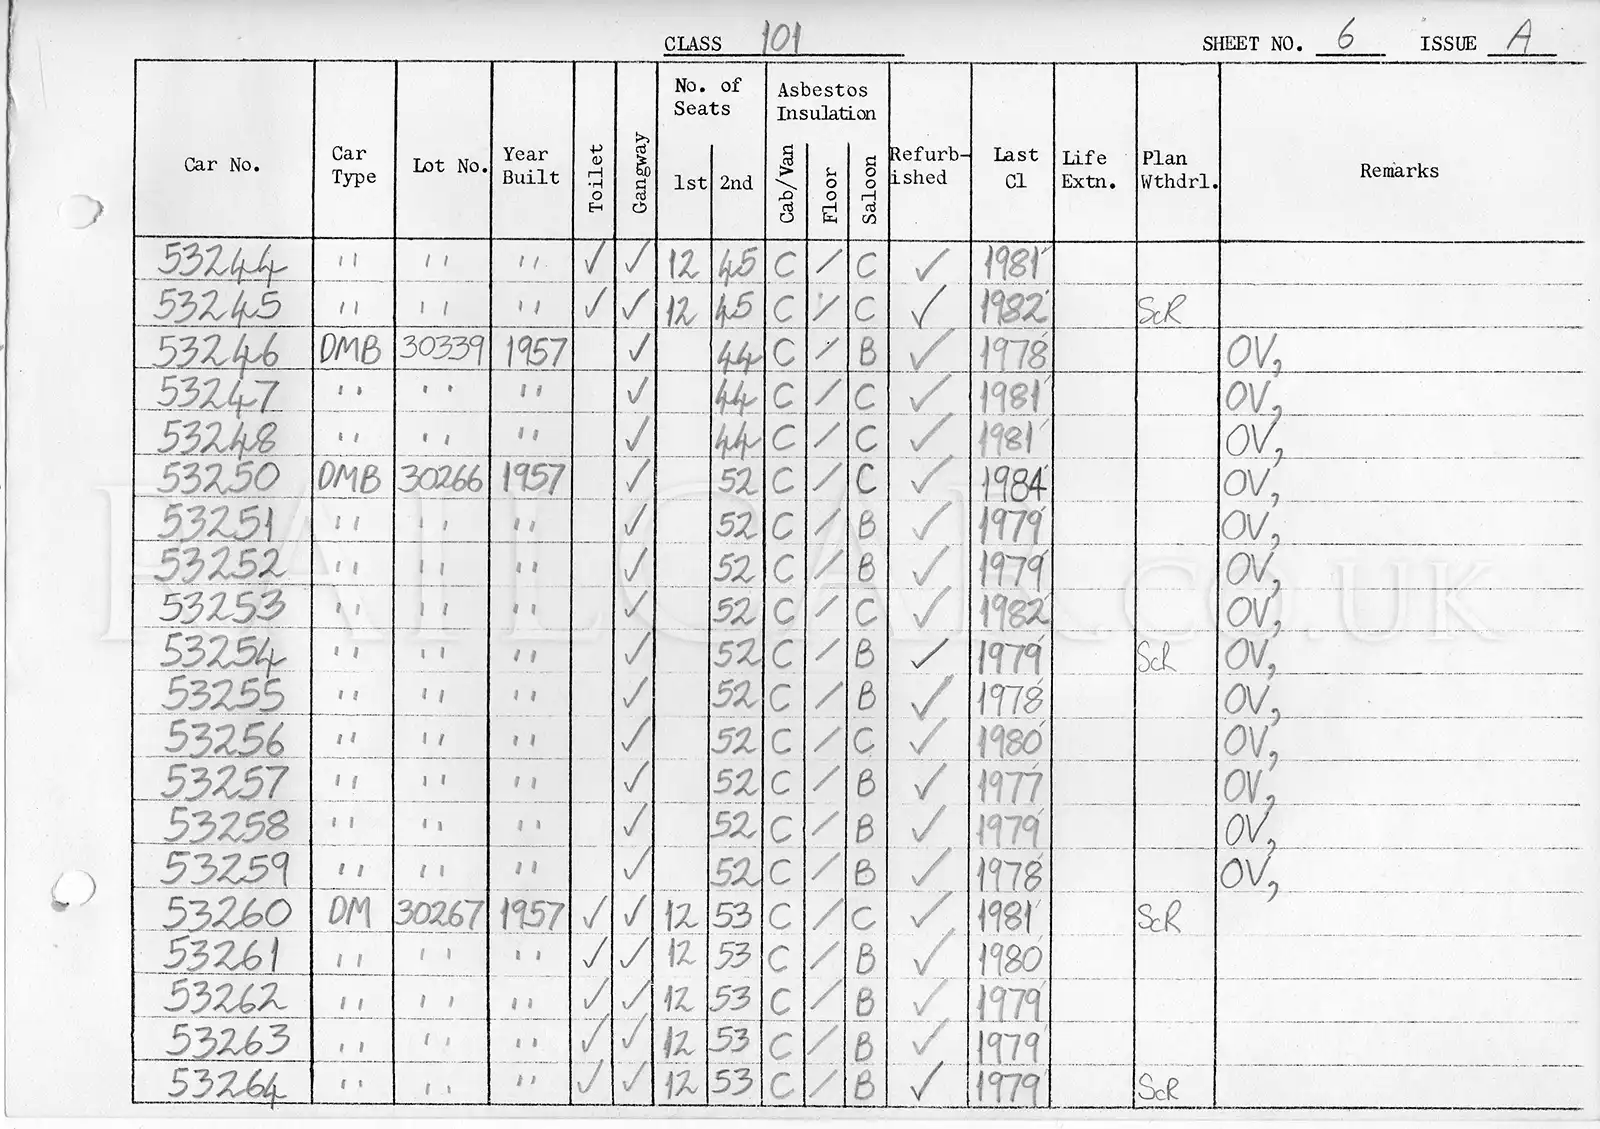 CLASS 101 SHEET NO. 6 ISSUE A
Car No. Car Type Lot No. Year Built Toilet Gangway No. of Seats 1st 2nd Asbestos Insulation Cab/Van Floor Saloon Refurb-ished Last Cl Life Extn. Plan Wthdrl. Remarks
53244 " " " ✓ ✓ 12 45 C / C ✓ 1981
53245 " " " ✓ ✓ 12 45 C / C ✓ 1982 ScR
53246 DMB 30339 1957 ✓ 44 C / B ✓ 1978 OV,
53247 " " " ✓ 44 C / C ✓ 1981 OV,
53248 " " " ✓ 44 C / C ✓ 1981 OV,
53250 DMB 30266 1957 ✓ 52 C / C ✓ 1984 OV,
53251 " " " ✓ 52 C / B ✓ 1979 OV,
53252 " " " ✓ 52 C / B ✓ 1979 OV,
53253 " " " ✓ 52 C / C ✓ 1982 OV,
53254 " " " ✓ 52 C / B ✓ 1979 ScR OV,
53255 " " " ✓ 52 C / B ✓ 1978 OV,
53256 " " " ✓ 52 C / C ✓ 1980 OV,
53257 " " " ✓ 52 C / B ✓ 1977 OV,
53258 " " " ✓ 52 C / B ✓ 1979 OV,
53259 " " " ✓ 52 C / B ✓ 1978 OV,
53260 DM 30267 1957 ✓ ✓ 12 53 C / C ✓ 1981 ScR
53261 " " " ✓ ✓ 12 53 C / B ✓ 1980
53262 " " " ✓ ✓ 12 53 C / B ✓ 1979
53263 " " " ✓ ✓ 12 53 C / B ✓ 1979
53264 " " " ✓ ✓ 12 53 C / B ✓ 1979 ScR
RAILCAR.CO.UK